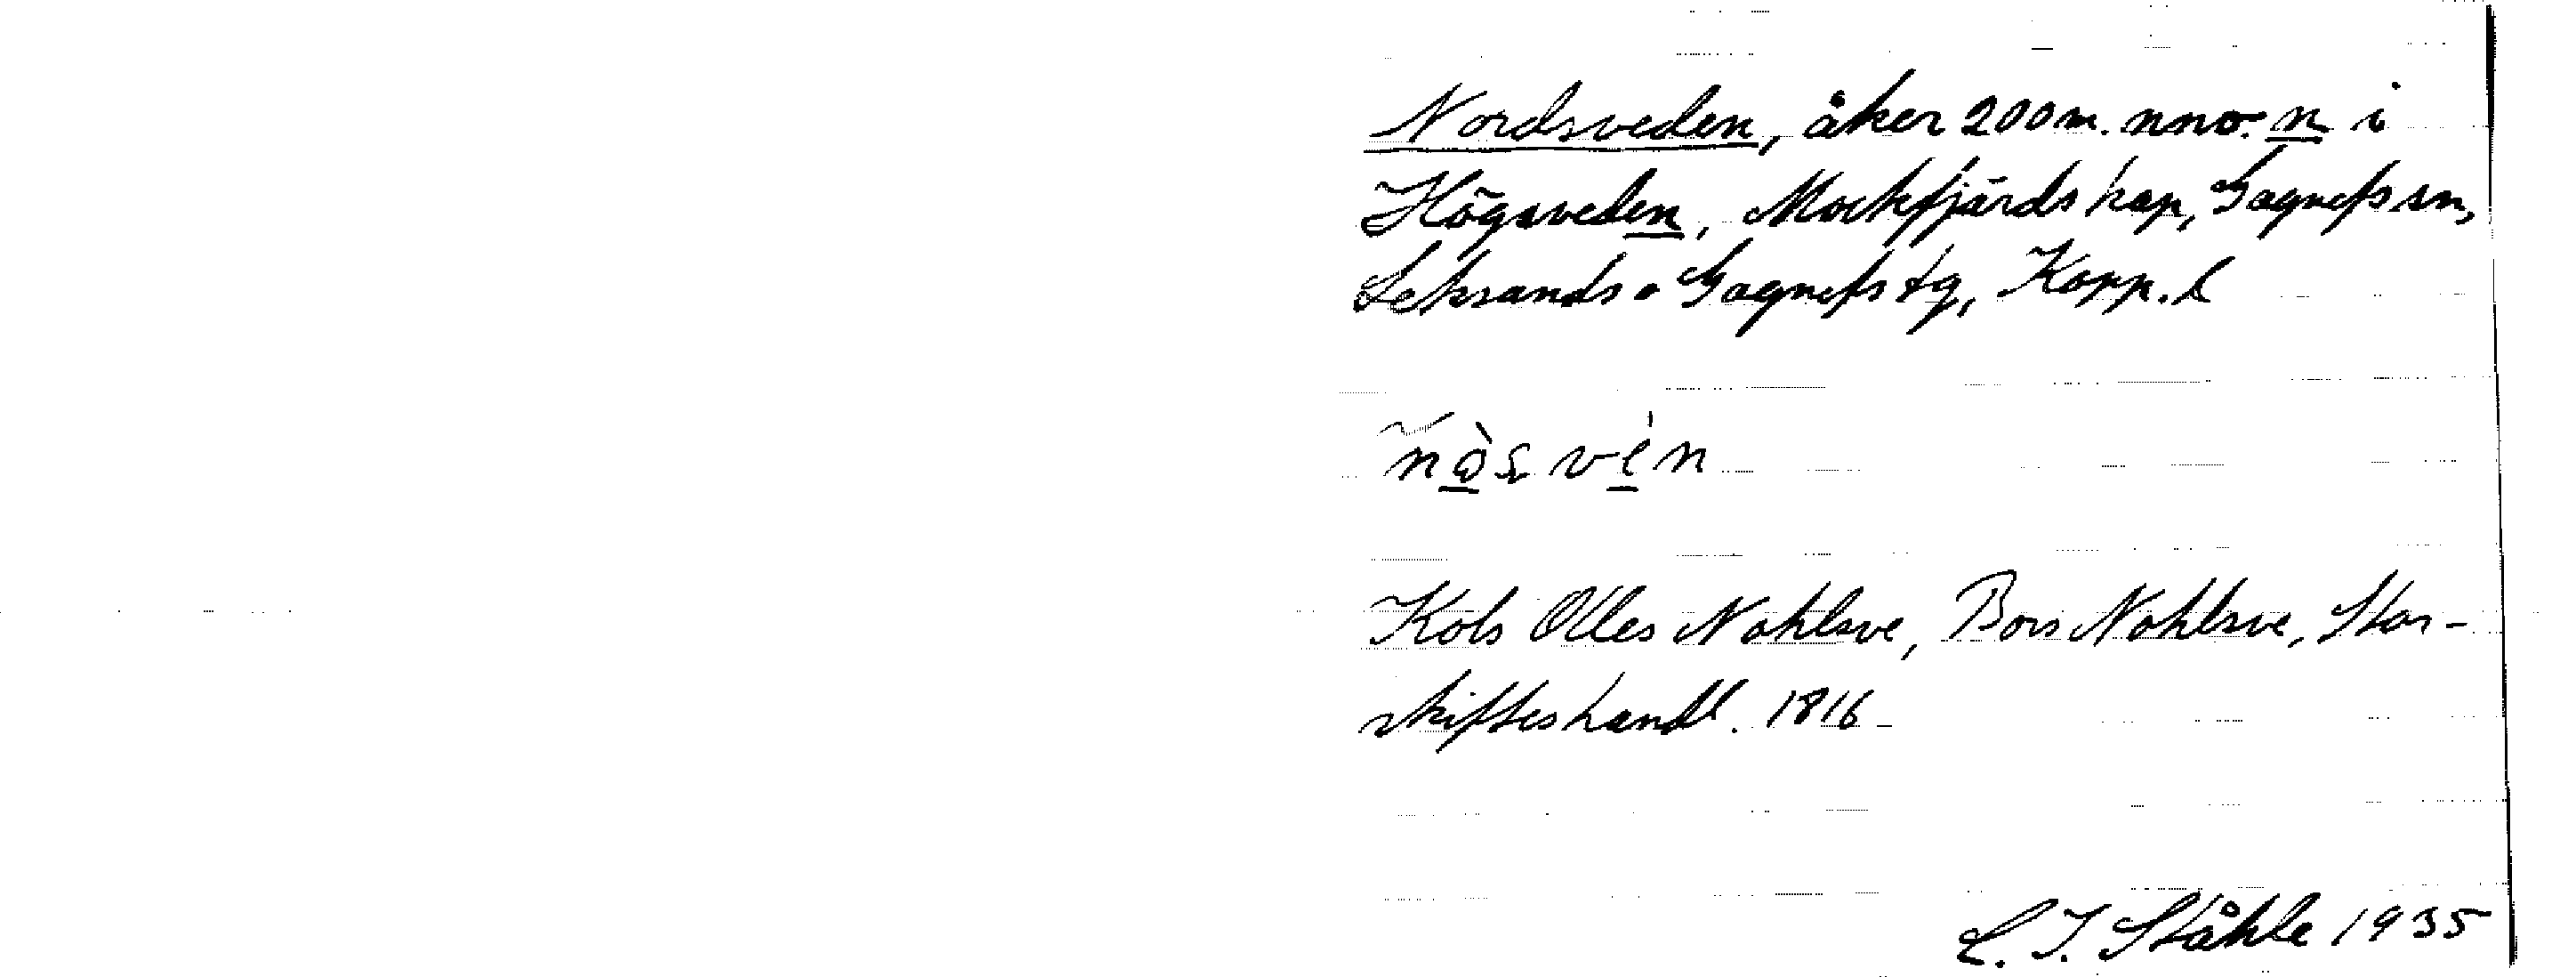 Nordsveden, åker 200 m. nno. n i
Högsveden, Mockfjärds kap, Gagnefs sn,
Leksands o Gagnefs tg, Kopp. l
Kols Olles Nohlsve, Bois Nohlsve, Stor-
skifteshandl. 1816
C. I. Ståhle 1935